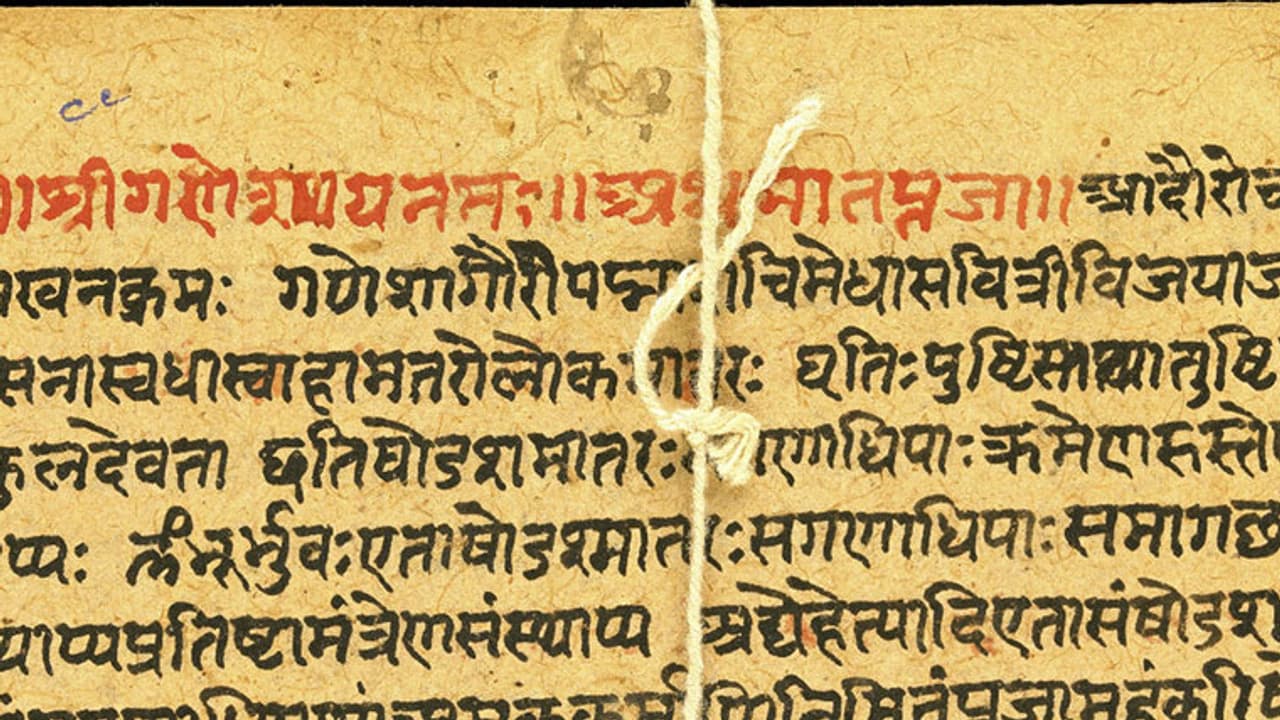 ॥श्रीगणेशायनमः॥अथमातृपूजा॥आदौरोच
खनक्रमः गणेशागौरीपद्माशचीमेधासवित्रीविजयाज
सेनास्वधास्वाहामातरोलोकमातरः धृतिःपुष्टिस्तथातुष्टि
कुलदेवता इतिषोडशमातरः गणाधिपाःक्रमेण
प्य ॐभूर्भुवःएताषोडशमातरःसगणाधिपाःसमागछ
प्यप्रतिष्टामंत्रेणसंस्थाप्य अद्येहेत्यादिएतासंषोडश